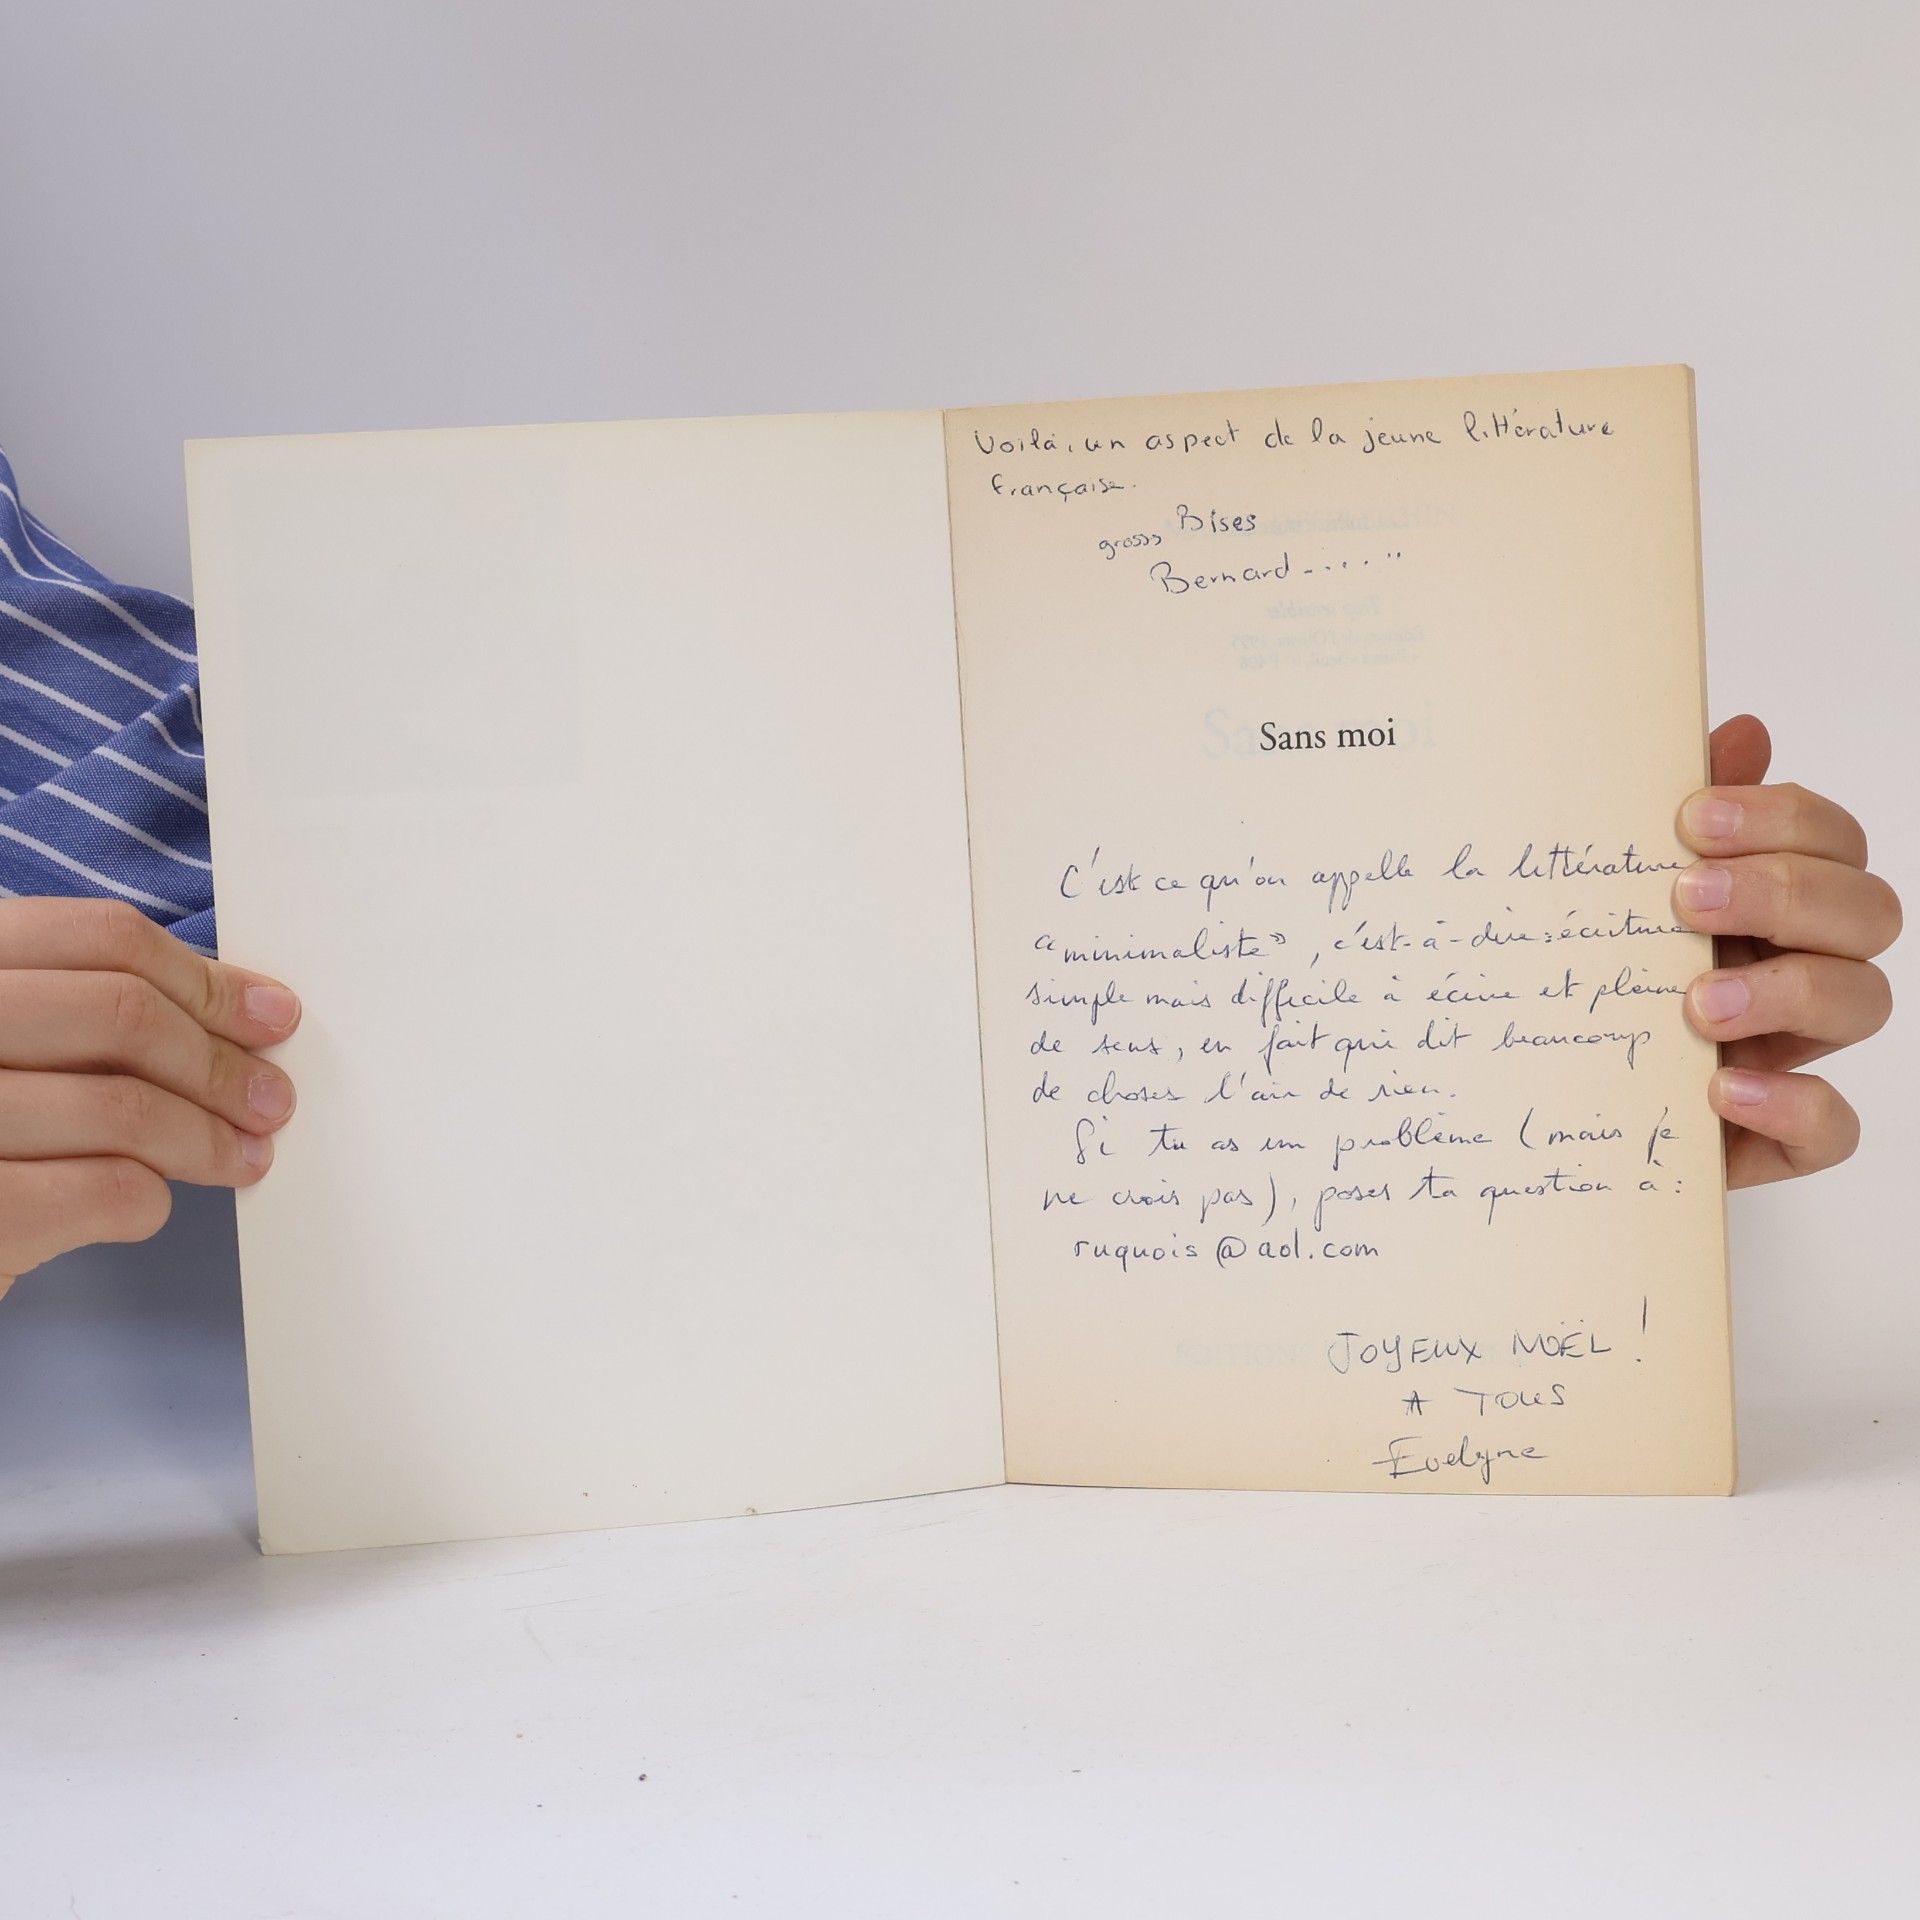 Voilà, un aspect de la jeune littérature
française.
Bises
grosses
Bernard
Sans moi
C'est ce qu'on appelle la littérature
"minimaliste", c'est-à-dire : écriture
simple mais difficile à écrire et pleine
de sens, en fait qui dit beaucoup
de choses l'air de rien.
Si tu as un problème (mais je
ne crois pas), poses ta question à :
ruquois@aol.com
JOYEUX NOËL !
A TOUS
Evelyne